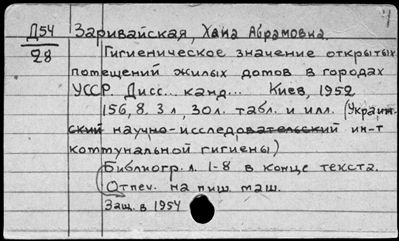 Д54 Заривайская, Хана Абрамовна.
28 Гигиеническое значение открытых
помещений жилых домов в городах
УССР. Дисс... канд... Киев, 1952
156, 8. 3 л, 30 л. табл. и илл. (Украин-
ский научно-исследовательский ин-т
коммунальной гигиены)
Библиогр. л. 1-8 в конце текста.
Отпеч. на пиш. маш.
Защ. в 1954